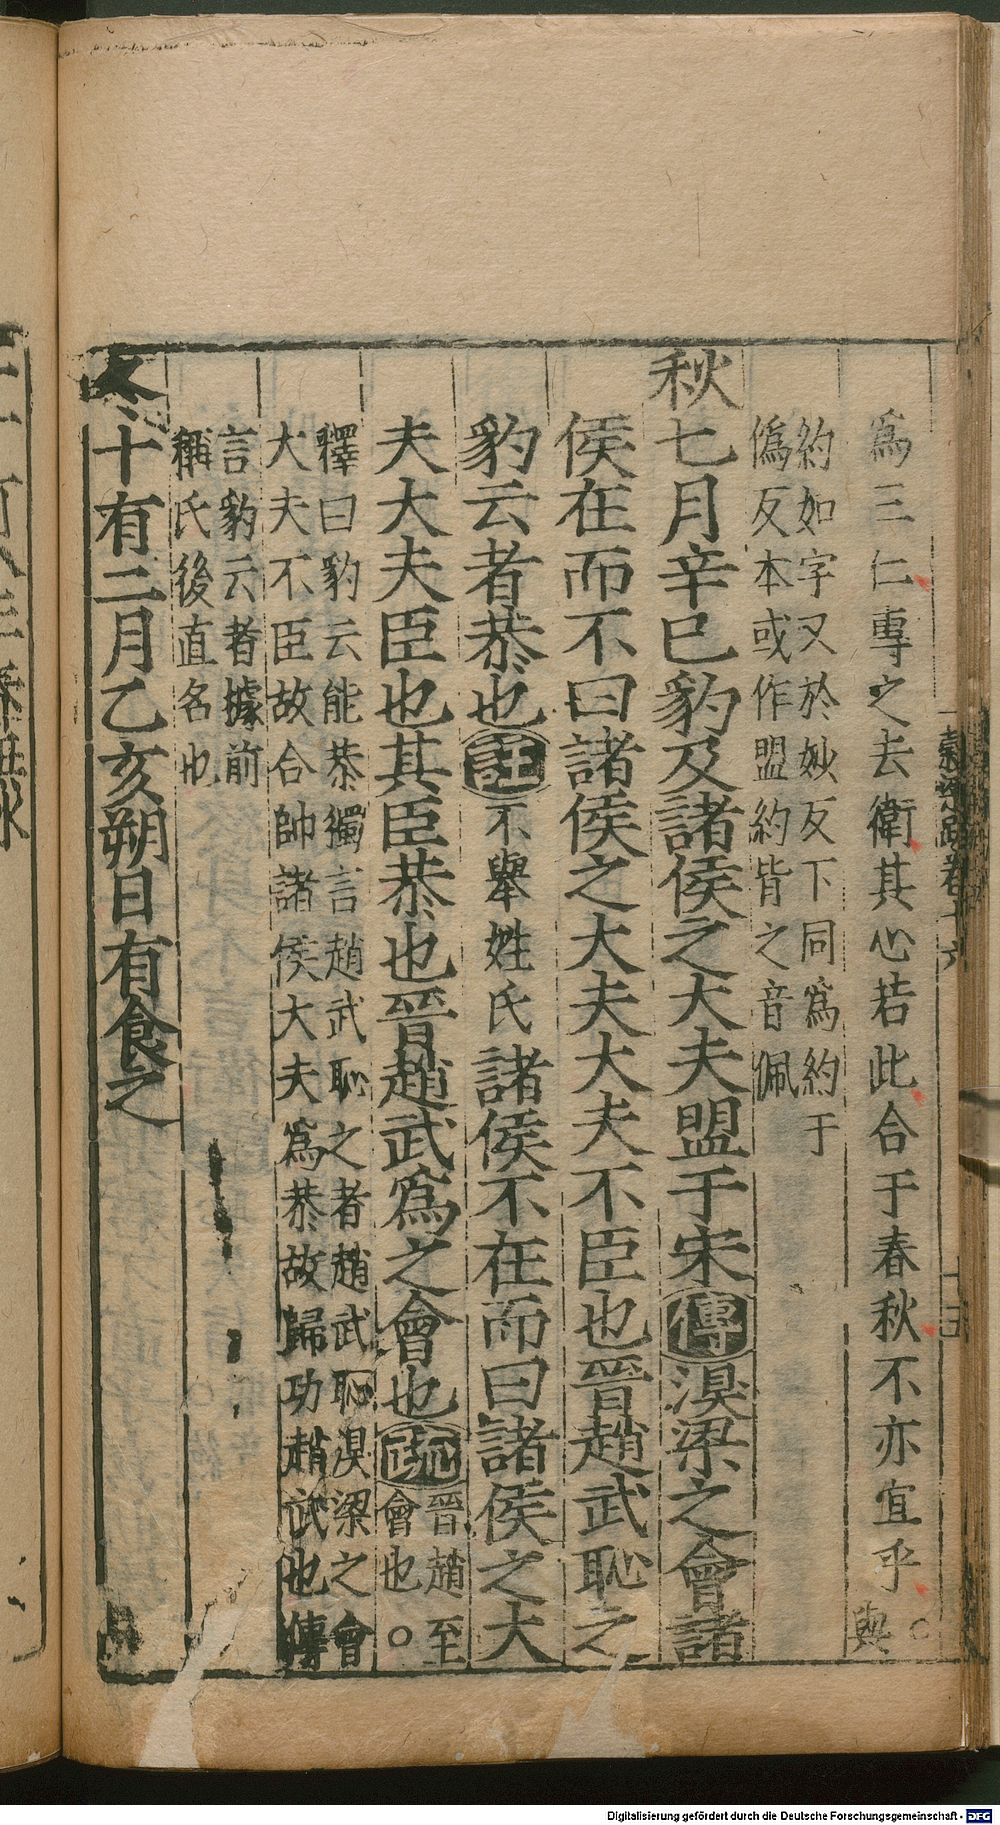 為三仁專之去衛其心若此合于春秋不亦宜乎○與
約如字又於妙反下同為約于
偽反本或作盟約皆之音佩
秋七月辛巳豹及諸侯之大夫盟于宋傳溴梁之會諸
侯在而不曰諸侯之大夫大夫不臣也晉趙武恥之
豹云者恭也註不舉姓氏諸侯不在而曰諸侯之大
夫大夫臣也其臣恭也晉趙武為之會也疏晉趙至
會也○
釋曰豹云能恭獨言趙武恥之者趙武恥溴梁之會
大夫不臣故合帥諸侯大夫為恭故歸功趙武也傳
言豹云者據前
稱氏後直名也
冬十有二月乙亥朔日有食之
Digitalisierung gefördert durch die Deutsche Forschungsgemeinschaft - DFG